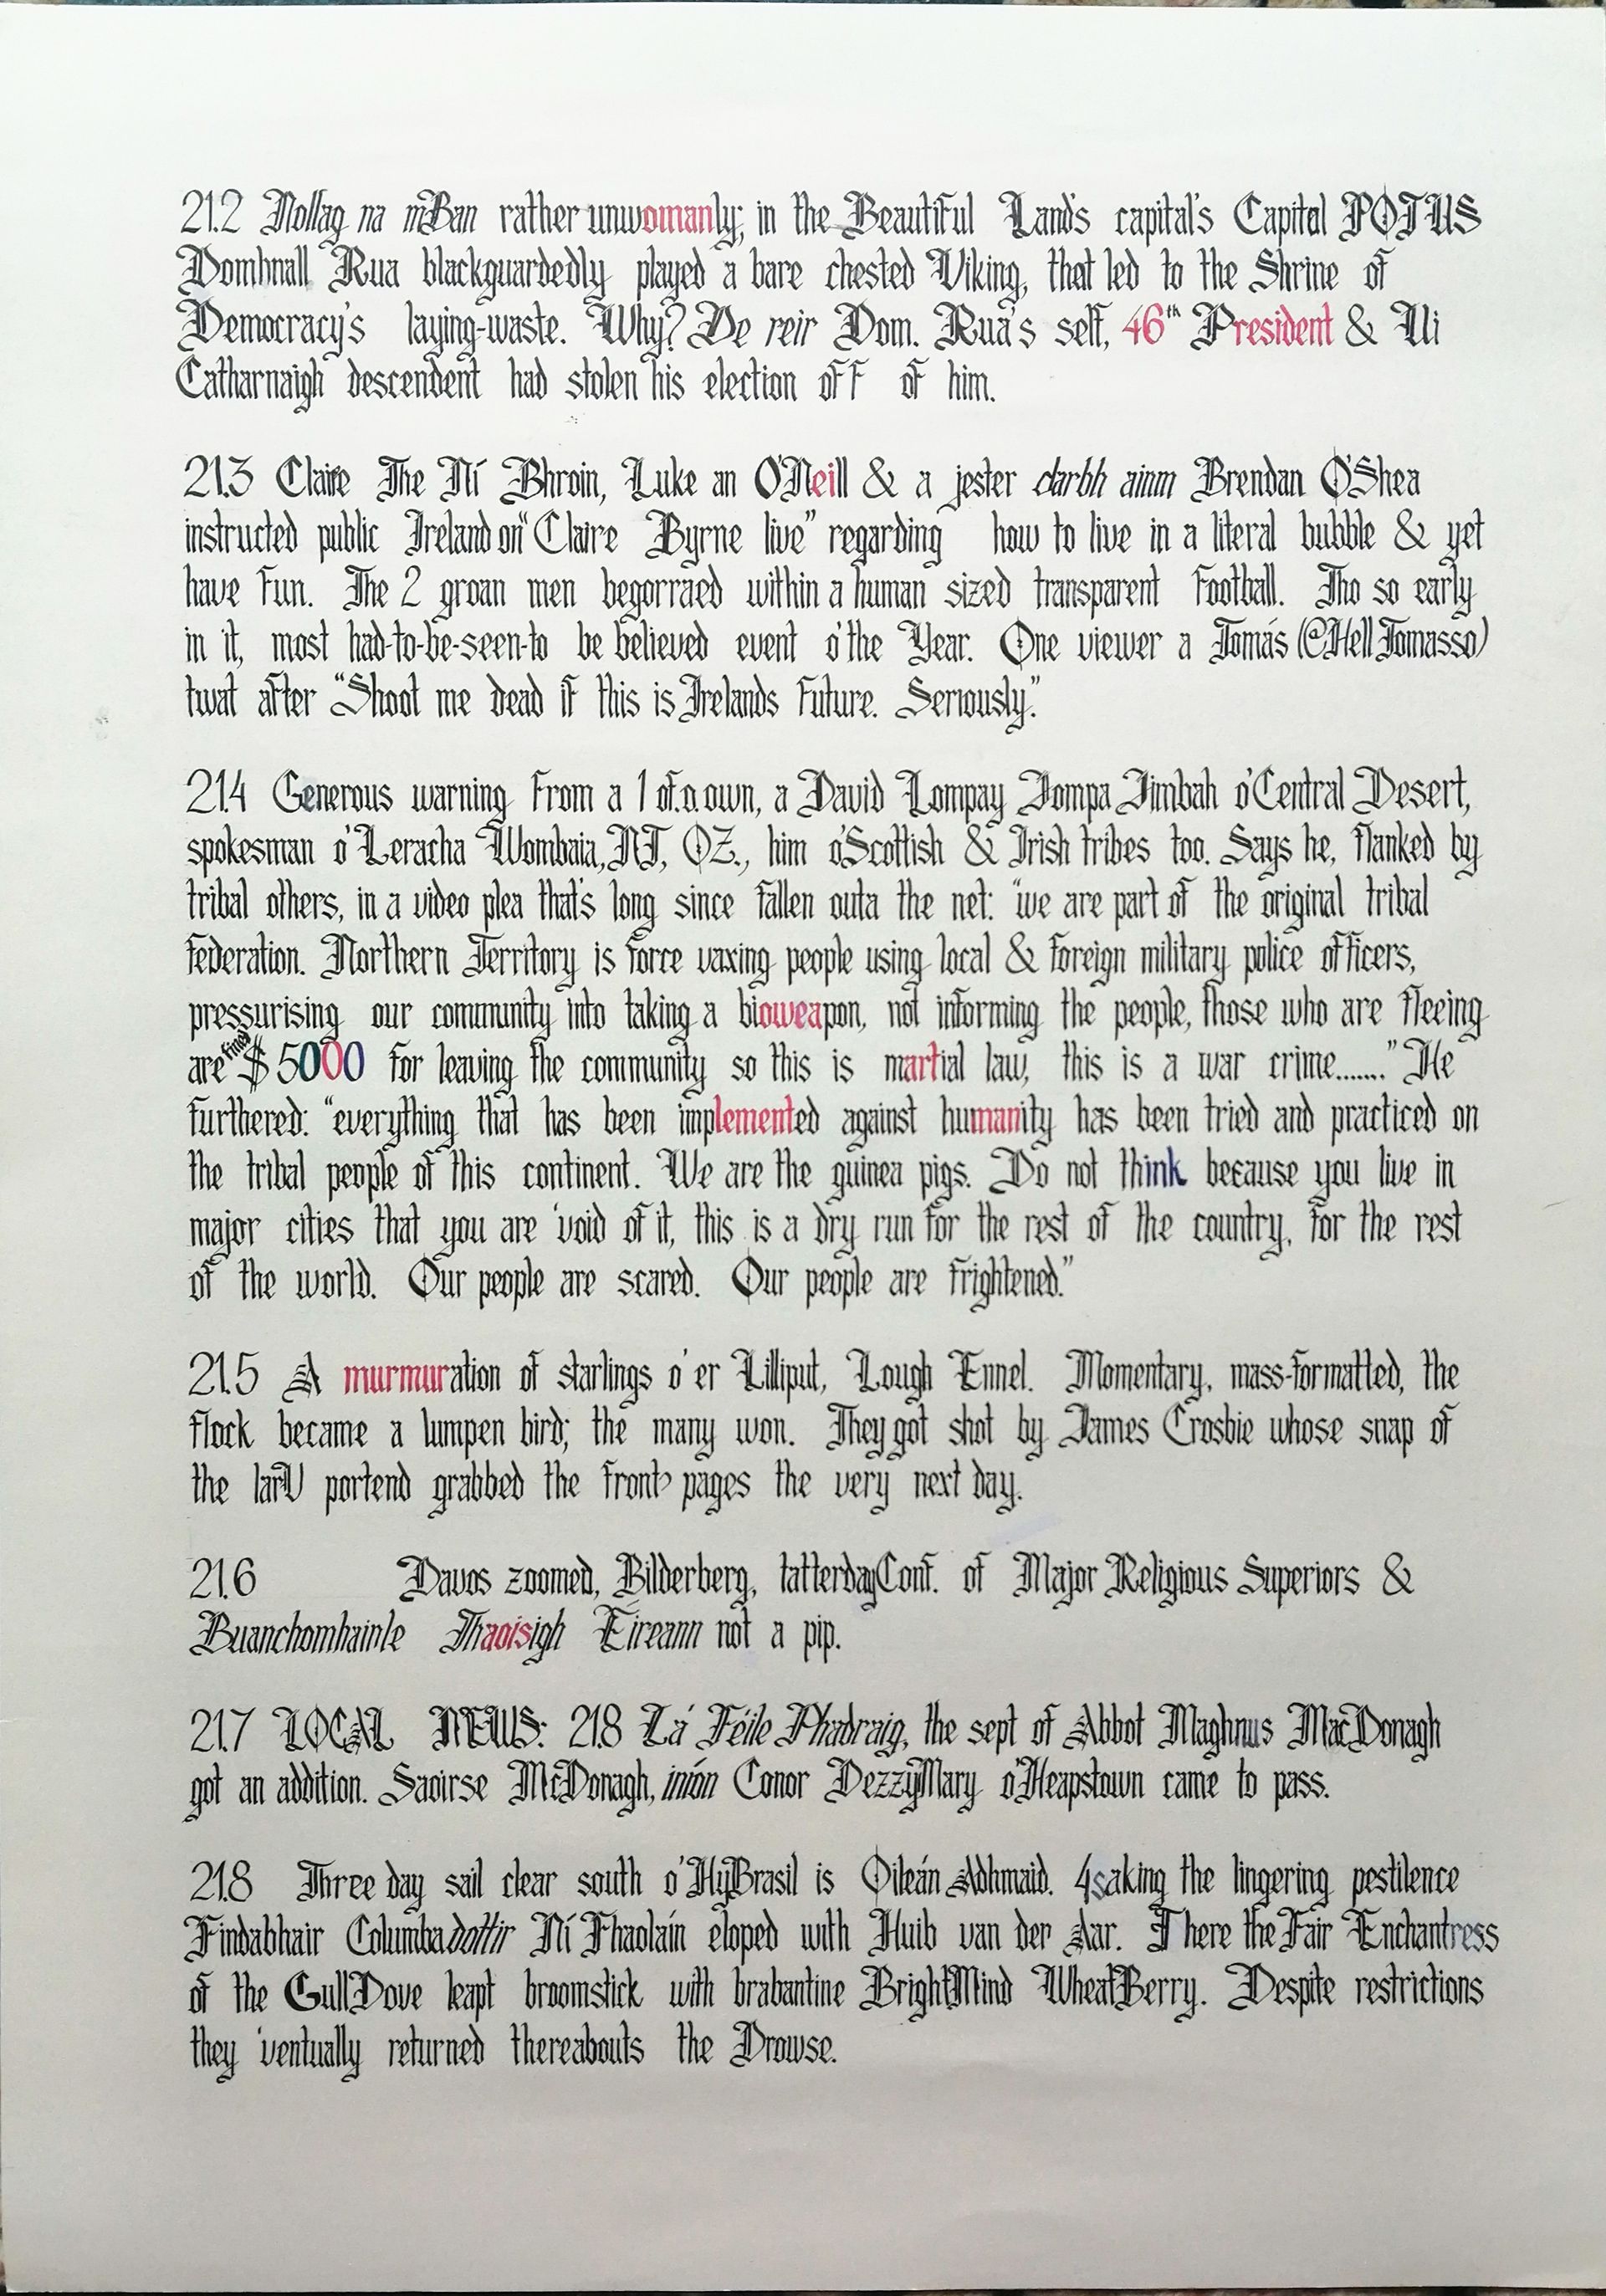 21.2 Nollag na mBan rather unwomanly; in the Beautiful Land's capital's Capitol POTUS
Domhnall Rua blackguardedly played a bare chested Viking, that led to the Shrine of
Democracy's laying-waste. Why? De reir Dom. Rua's self, 46th President & Ui
Catharnaigh descendent had stolen his election off of him.
21.3 Claire The Ní Bhroin, Luke an O'Neill & a jester darbh ainm Brendan O'Shea
instructed public Ireland on "Claire Byrne live" regarding how to live in a literal bubble & yet
have fun. The 2 groan men begorraed within a human sized transparent football. Tho so early
in it, most had-to-be-seen-to be believed event o'the Year. One viewer a Tomás (@Hell Tomasso)
twat after "Shoot me dead if this is Irelands future. Seriously."
21.4 Generous warning from a 1 of.o.own, a David Lompay Jompa Jimbah o'Central Desert,
spokesman o'Leracha Wombaia, NT, OZ., him o'Scottish & Irish tribes too. Says he, flanked by
tribal others, in a video plea that's long since fallen outa the net: "we are part of the original tribal
federation. Northern Territory is force vaxing people using local & foreign military police officers,
pressurising our community into taking a bioweapon, not informing the people, those who are fleeing
are fined $5000 for leaving the community so this is martial law, this is a war crime......." He
furthered: "everything that has been implemented against humanity has been tried and practiced on
the tribal people of this continent. We are the guinea pigs. Do not think because you live in
major cities that you are 'void of it, this is a dry run for the rest of the country, for the rest
of the world. Our people are scared. Our people are frightened."
21.5 A murmuration of starlings o'er Lilliput, Lough Ennel. Momentary, mass-formatted, the
flock became a lumpen bird; the many won. They got shot by James Crosbie whose snap of
the portend grabbed the front pages the very next day.
21.6 Davos zoomed, Bilderberg, tatterday Conf. of Major Religious Superiors &
Buanchomhairle Thaoisigh Éireann not a pip.
21.7 LOCAL NEWS: 21.8 Lá Féile Phadraig, the sept of Abbot Maghnus MacDonagh
got an addition. Saoirse McDonagh, iníon Conor DezzyMary o'Heapstown came to pass.
21.8 Three day sail clear south o'HyBrasil is Oileán Adhmaid. 4saking the lingering pestilence
Findabhair Columbadottir Ní Fhaoláin eloped with Huib van der Aar. There the Fair Enchantress
of the GullDove leapt broomstick with brabantine BrightMind WheatBerry. Despite restrictions
they 'ventually returned thereabouts the Drowse.